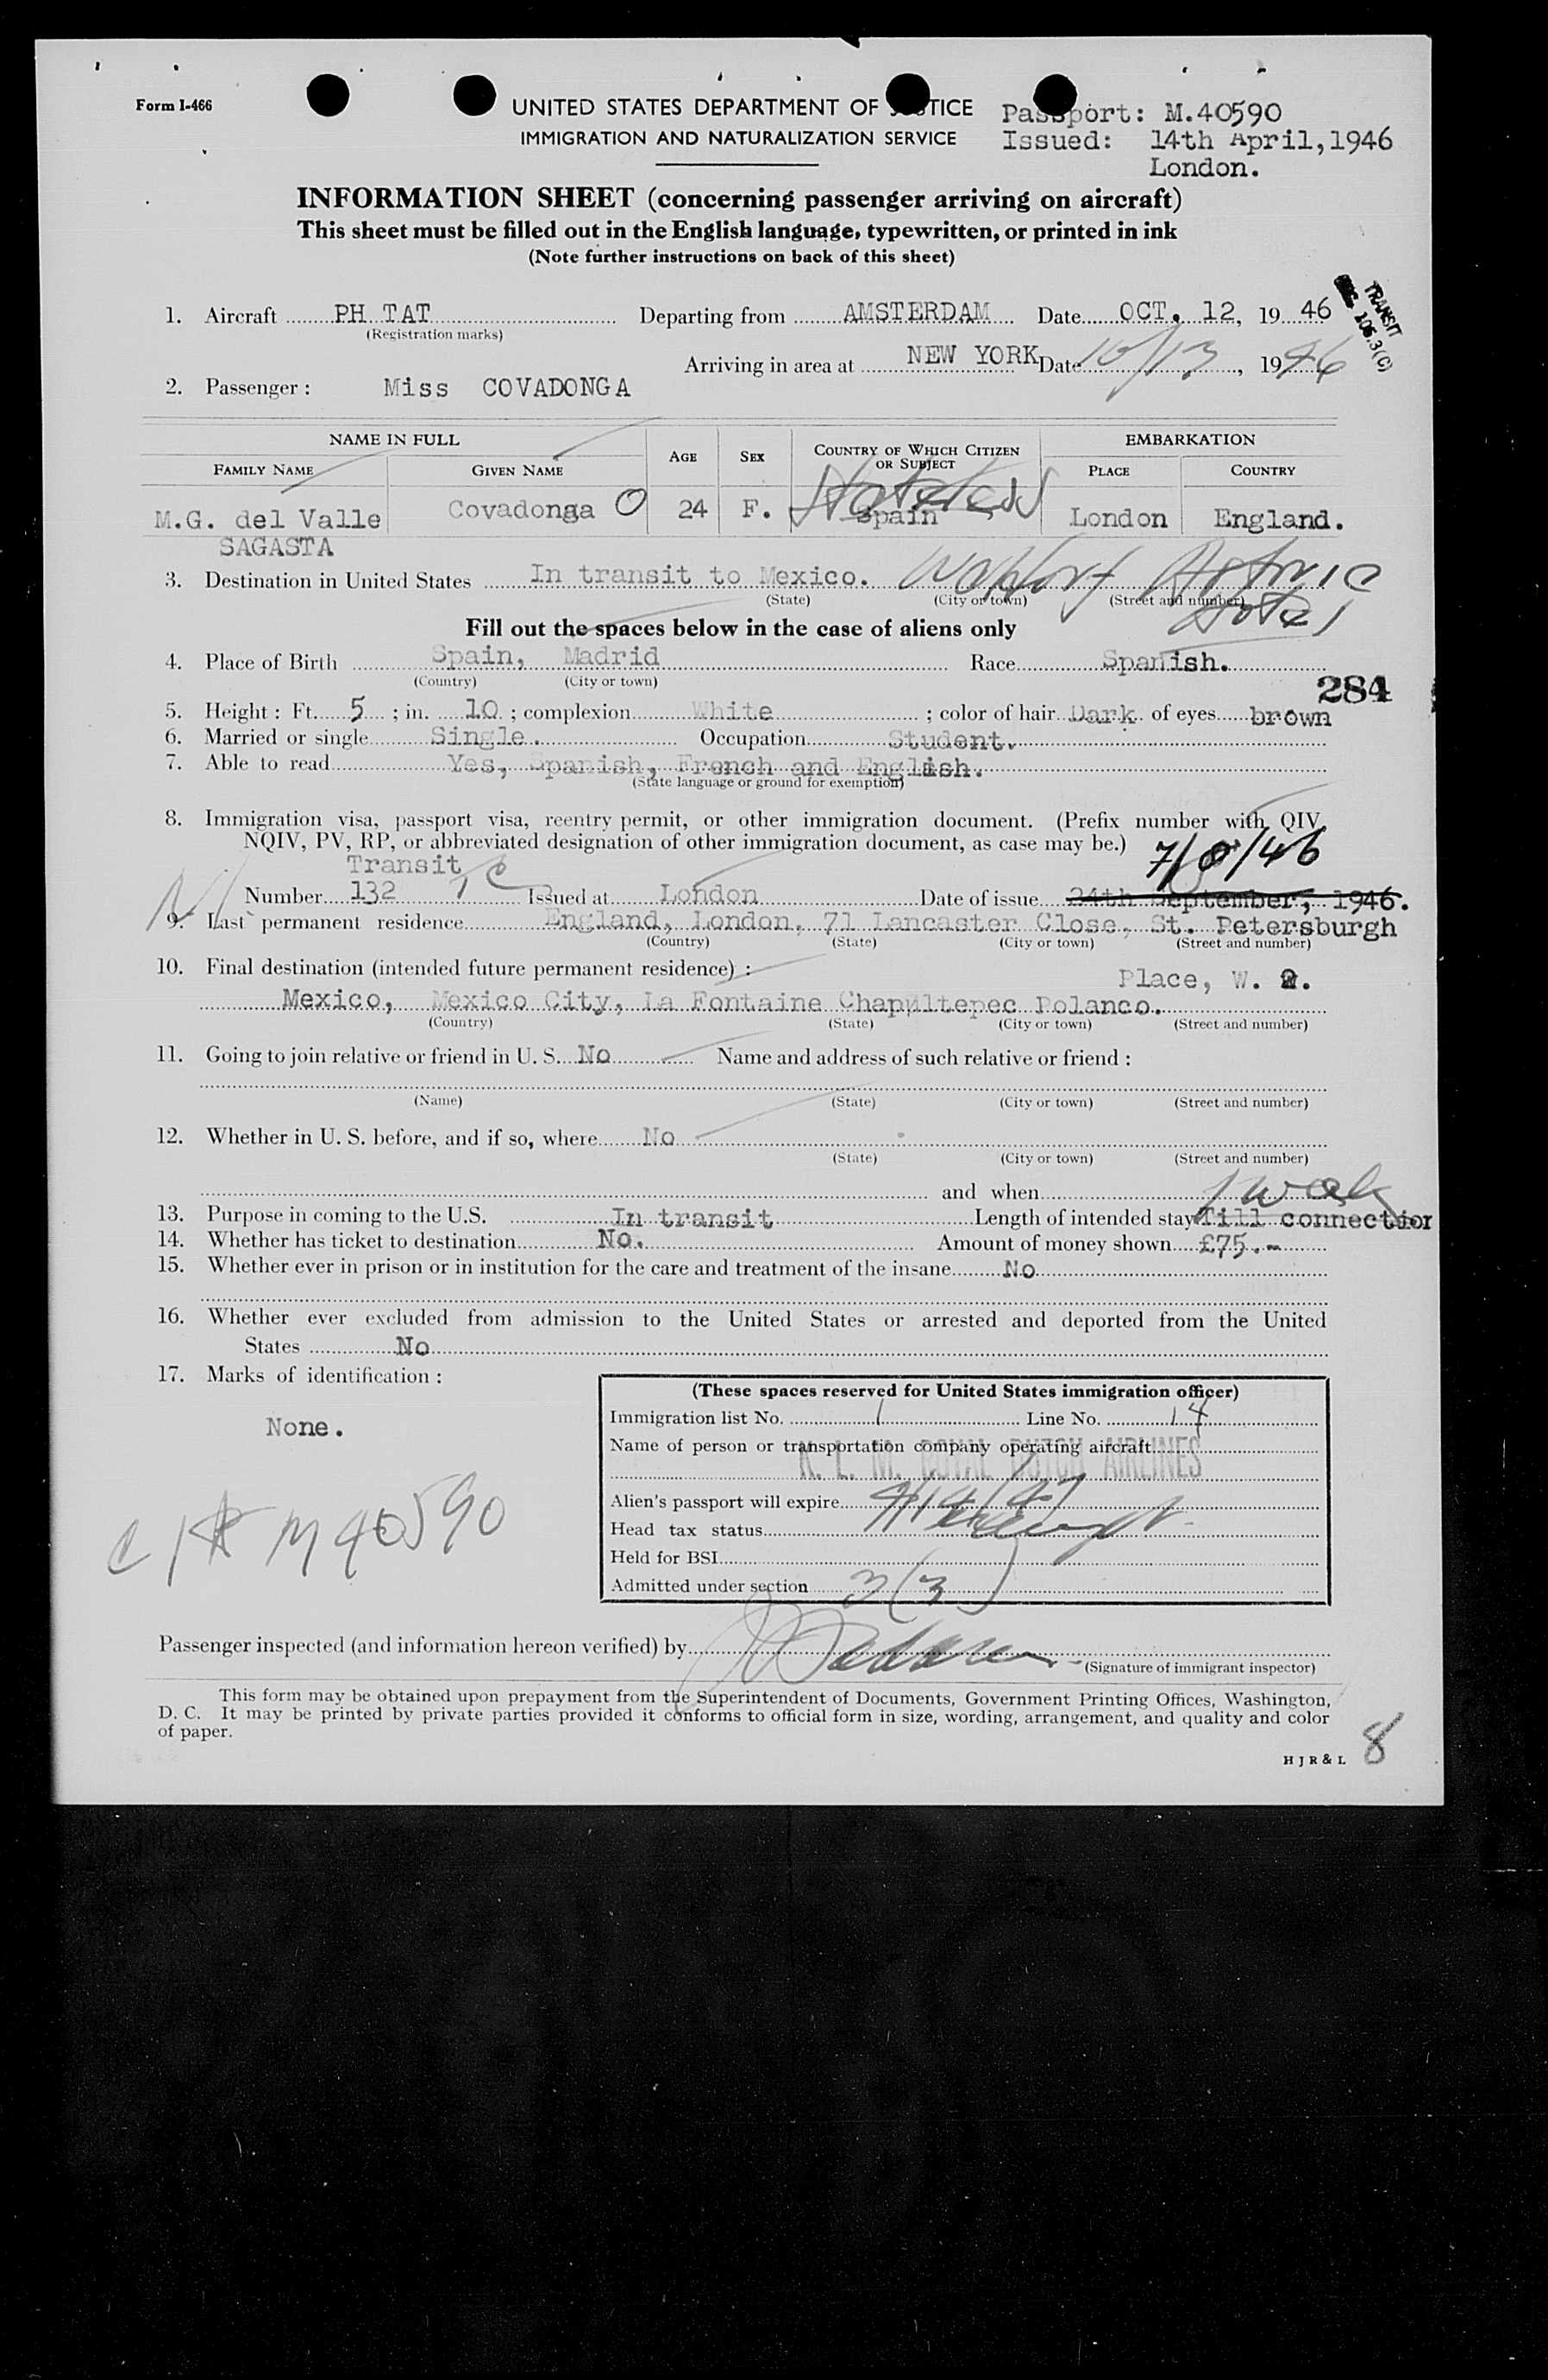 Form I-466
UNITED STATES DEPARTMENT OF JUSTICE
IMMIGRATION AND NATURALIZATION SERVICE
Passport: M.40590
Issued: 14th April, 1946
London.
INFORMATION SHEET (concerning passenger arriving on aircraft)
This sheet must be filled out in the English language, typewritten, or printed in ink
(Note further instructions on back of this sheet)
TRANSIT
106.3(C)
1. Aircraft PH TAT Departing from AMSTERDAM Date OCT. 12, 19 46
(Registration marks)
Arriving in area at NEW YORK Date 10/13, 1946
2. Passenger : Miss COVADONGA
NAME IN FULL AGE SEX COUNTRY OF WHICH CITIZEN OR SUBJECT EMBARKATION
FAMILY NAME GIVEN NAME PLACE COUNTRY
M.G. del Valle Covadonga O 24 F. Spain London England.
SAGASTA
3. Destination in United States In transit to Mexico. Waldorf Astoria
(State) (City or town) (Street and number)
Hotel
Fill out the spaces below in the case of aliens only
4. Place of Birth Spain, Madrid Race Spanish.
(Country) (City or town)
284
5. Height : Ft. 5 ; in. 10 ; complexion White ; color of hair Dark of eyes brown
6. Married or single Single. Occupation Student.
7. Able to read Yes, Spanish, French and English.
(State language or ground for exemption)
8. Immigration visa, passport visa, reentry permit, or other immigration document. (Prefix number with QIV,
NQIV, PV, RP, or abbreviated designation of other immigration document, as case may be.)
Transit
Number 132 TC Issued at London Date of issue 24th September, 1946.
9. Last permanent residence England, London, 71 Lancaster Close, St. Petersburgh
(Country) (State) (City or town) (Street and number)
Place, W. 2.
10. Final destination (intended future permanent residence) :
Mexico, Mexico City, La Fontaine Chapultepec Polanco.
(Country) (State) (City or town) (Street and number)
11. Going to join relative or friend in U. S. No Name and address of such relative or friend :
(Name) (State) (City or town) (Street and number)
12. Whether in U. S. before, and if so, where No
(State) (City or town) (Street and number)
and when
1 week
13. Purpose in coming to the U.S. In transit Length of intended stay Till connection
14. Whether has ticket to destination No. Amount of money shown £75.-
15. Whether ever in prison or in institution for the care and treatment of the insane No
16. Whether ever excluded from admission to the United States or arrested and deported from the United
States No
17. Marks of identification :
None.
M 40590
(These spaces reserved for United States immigration officer)
Immigration list No. 1 Line No. 14
Name of person or transportation company operating aircraft
K. L. M. ROYAL DUTCH AIRLINES
Alien's passport will expire 4/14/47
Head tax status
Held for BSI
Admitted under section 3(3)
Passenger inspected (and information hereon verified) by
(Signature of immigrant inspector)
This form may be obtained upon prepayment from the Superintendent of Documents, Government Printing Offices, Washington,
D. C. It may be printed by private parties provided it conforms to official form in size, wording, arrangement, and quality and color
of paper.
H J R & L
8